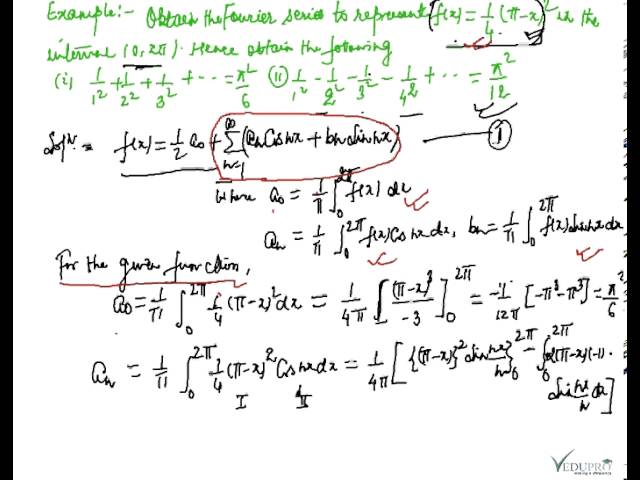 Example:- Obtain the Fourier series to represent f(x) = 1/4 (π-x)² in the
interval (0, 2π). Hence obtain the following
(i) 1/1² + 1/2² + 1/3² + --- = π²/6 (ii) 1/1² - 1/2² - 1/3² - 1/4² + --- = π²/12
Solⁿ:- f(x) = 1/2 a₀ + ∑_{n=1}^{∞} (aₙ Cos nx + bₙ Sin nx) — (1)
Where a₀ = 1/π ∫₀^{2π} f(x) dx
aₙ = 1/π ∫₀^{2π} f(x) Cos nx dx, bₙ = 1/π ∫₀^{2π} f(x) sin nx dx
For the given function,
a₀ = 1/π ∫₀^{2π} 1/4 (π-x)² dx = 1/4π [(π-x)³/-3]₀^{2π} = -1/12π [-π³-π³] = π²/6
aₙ = 1/π ∫₀^{2π} 1/4 (π-x)² Cos nx dx = 1/4π [{(π-x)² sin nx/n}₀^{2π} - ∫₀^{2π} 2(π-x)(-1).
I II
sin nx/n dx]
VEDUPRO